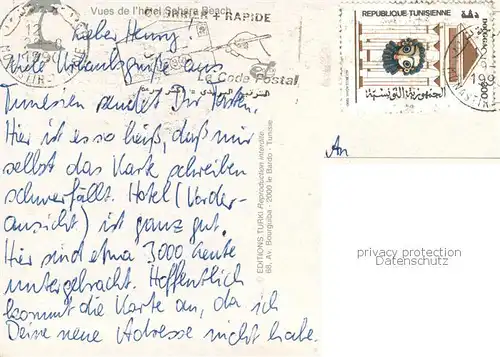 Vues de l'hôtel Sahara Beach
COURRIER + RAPIDE
Le Code Postal
REPUBLIQUE TUNISIENNE
الجمهورية التونسية
Lieber Henry!
Viele Urlaubsgrüße aus
Tunesien sendet Dir Torsten.
Hier ist es so heiß, daß mir
selbst das Karte schreiben
schwerfällt. Hotel (Vorder-
ansicht) ist ganz gut.
Hier sind etwa 3000 Leute
untergebracht. Hoffentlich
kommt die Karte an, da ich
Deine neue Adresse nicht habe.
An
© EDITIONS TURKI Reproduction interdite.
68, Av. Bourguiba - 2000 le Bardo - Tunisie
privacy protection
Datenschutz